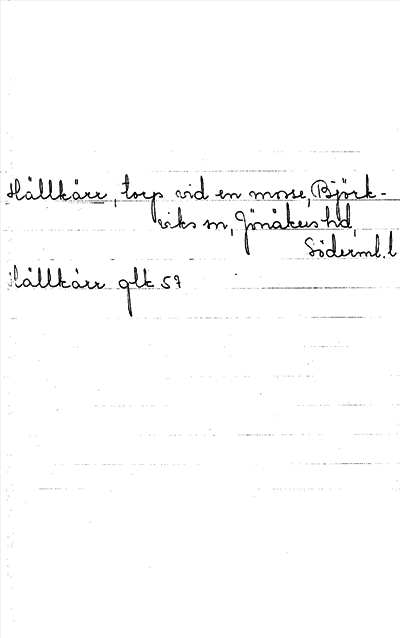 Hållkärr, torp vid en mosse, Björk-
viks sn, Jönåkers hd,
Söderml. l
Hållkärr glk 57